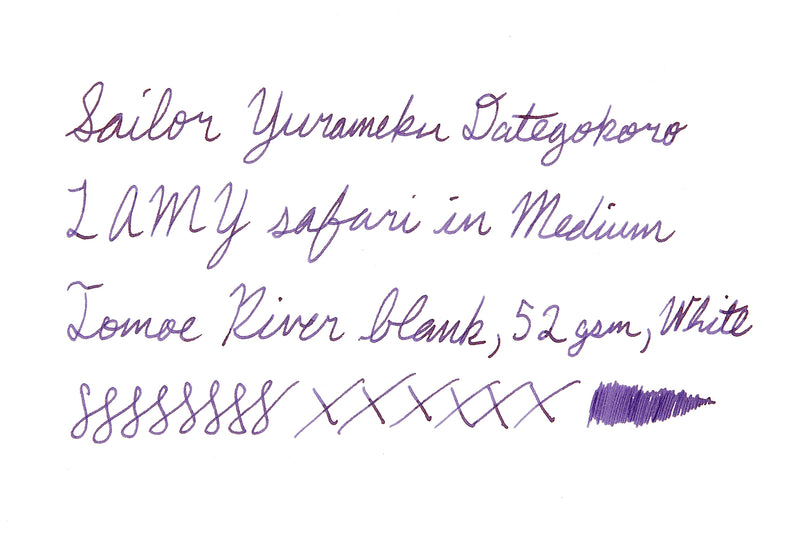 Sailor Yurameku Dategokoro
LAMY safari in Medium
Tomoe River blank, 52 gsm, White